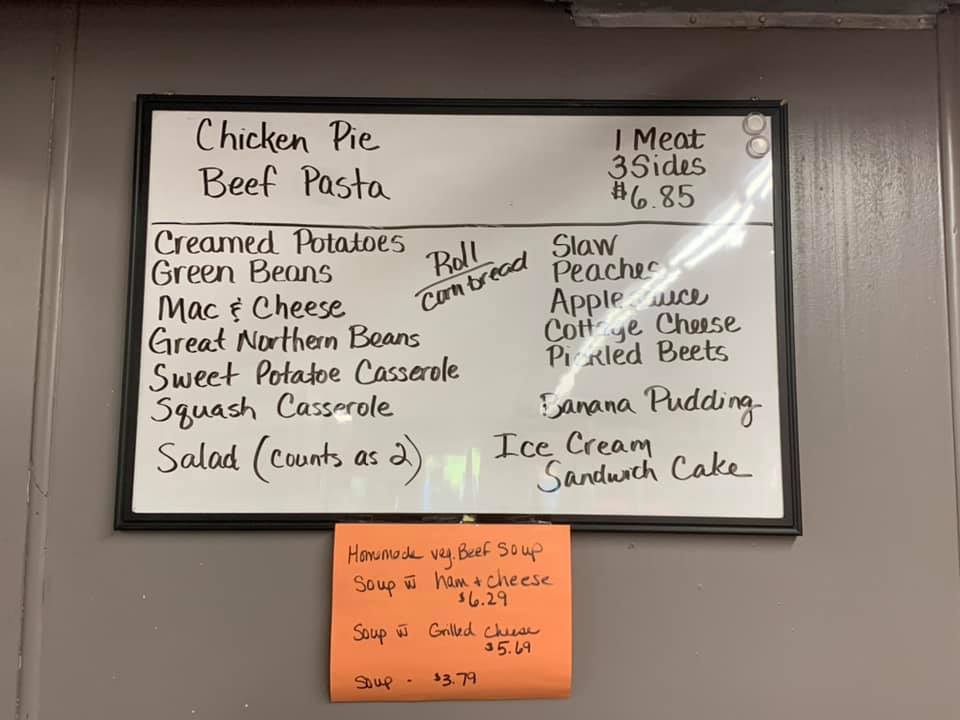 Chicken Pie
Beef Pasta
1 Meat
3 Sides
$6.85
Creamed Potatoes
Green Beans
Mac & Cheese
Great Northern Beans
Sweet Potatoe Casserole
Squash Casserole
Salad (counts as 2)
Roll
Corn bread
Slaw
Peaches
Applesauce
Cottage Cheese
Pickled Beets
Banana Pudding
Ice Cream
Sandwich Cake
Homemade veg. Beef Soup
Soup w̅ ham + cheese
$6.29
Soup w̅ Grilled Cheese
$5.69
Soup - $3.79